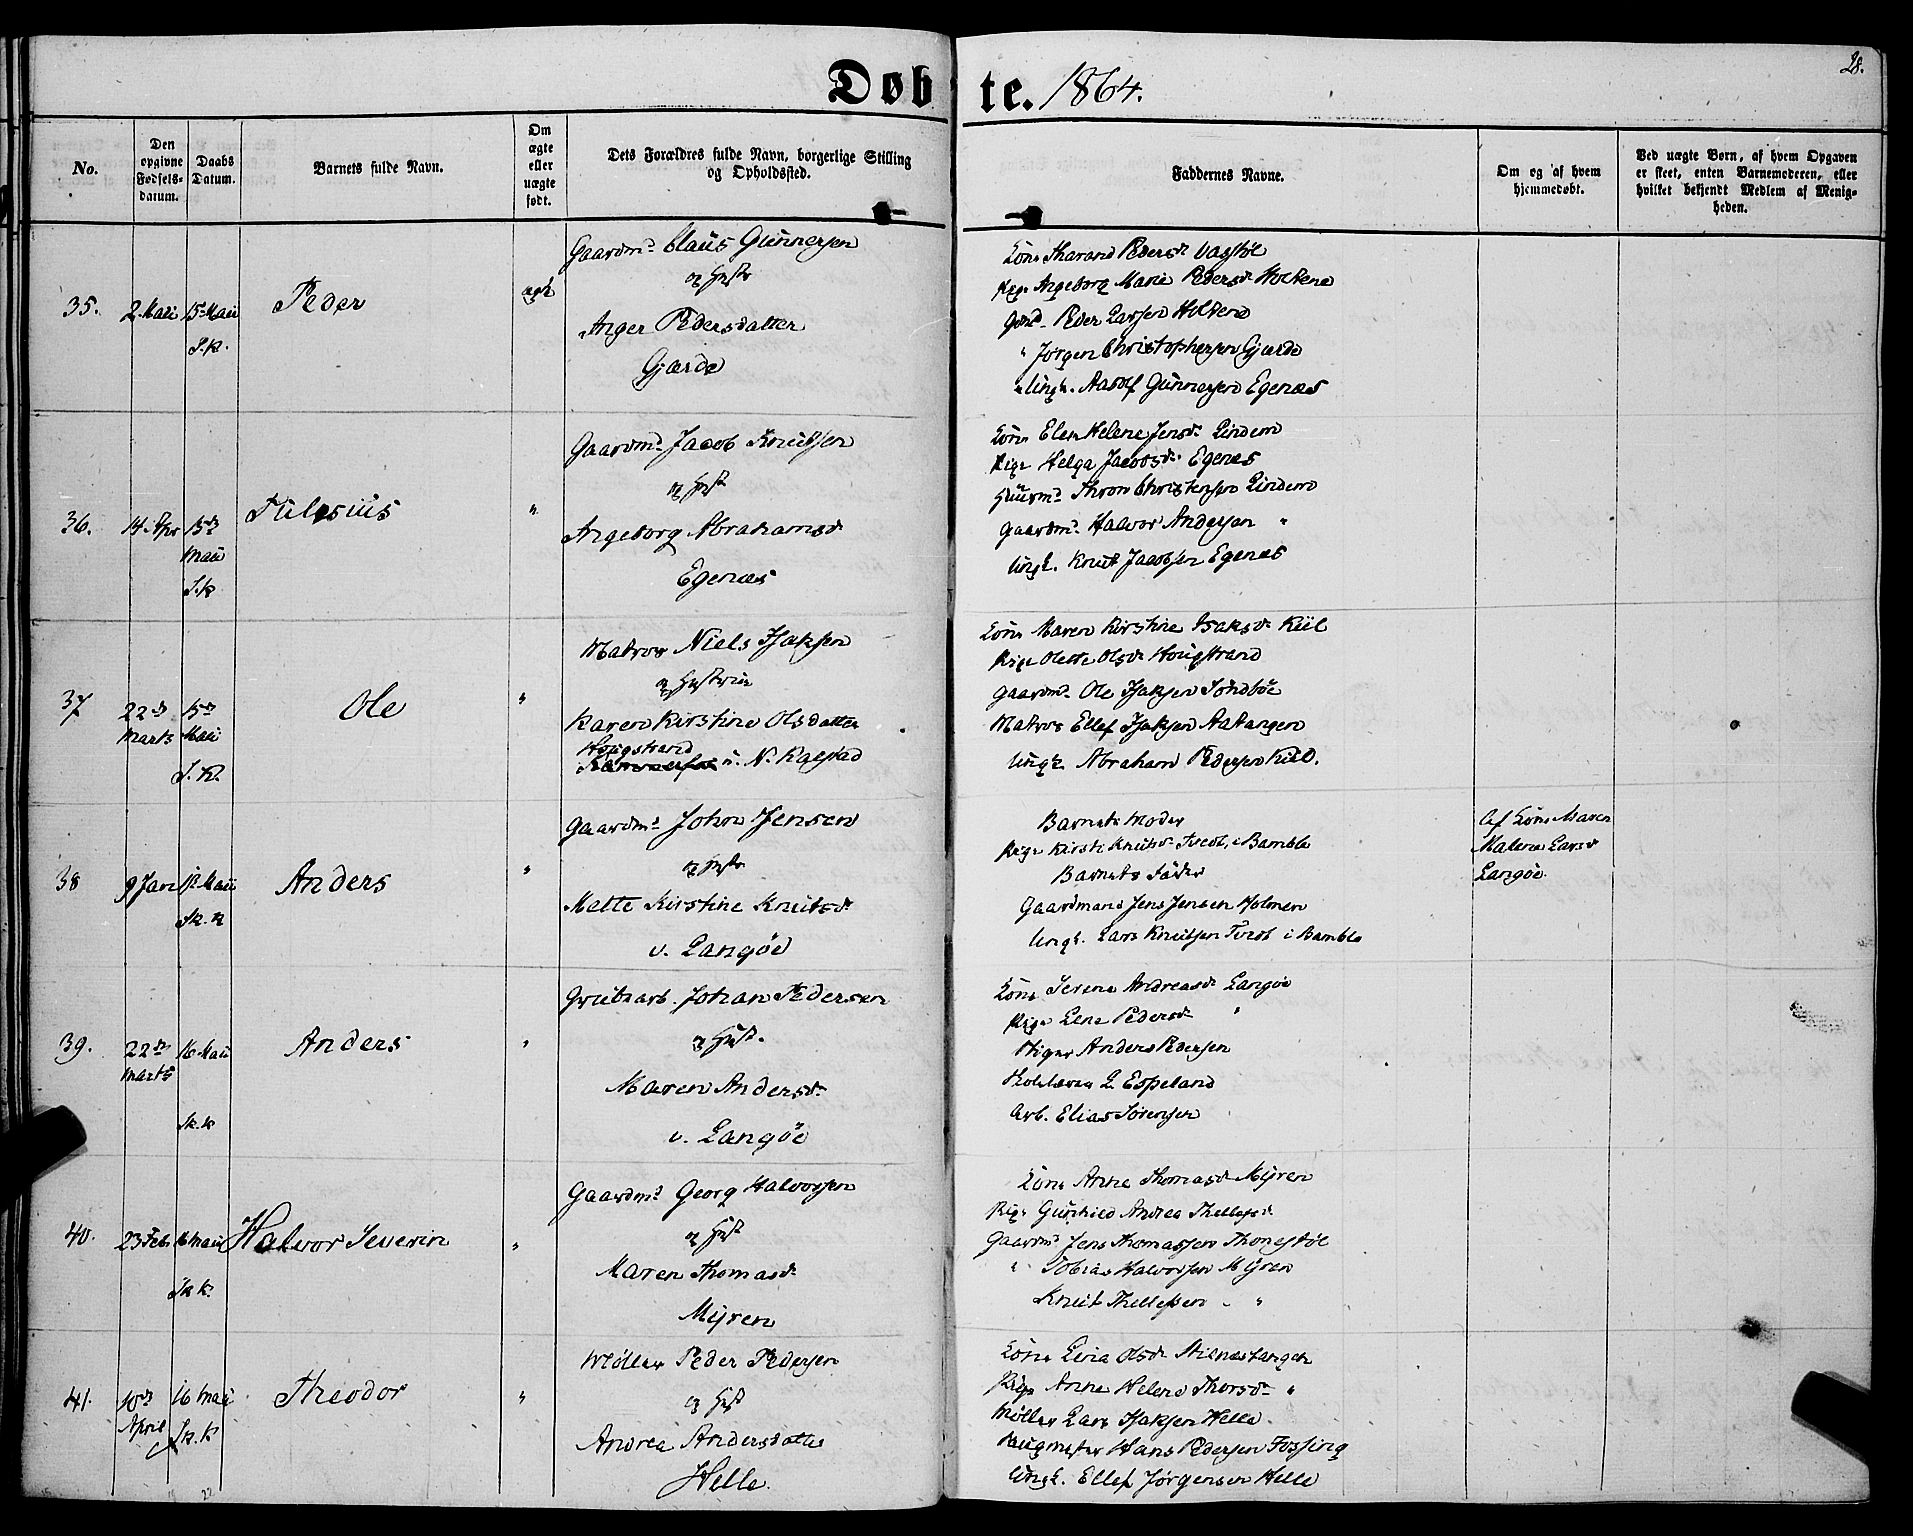 Døbte. 1864.
28.
No.
Den opgivne Fødsels-datum.
Daabs Datum.
Barnets fulde Navn.
Om ægte eller uægte født.
Dets Forældres fulde Navn, borgerlige Stilling og Opholdssted.
Faddernes Navne.
Om og af hvem hjemmedøbt.
Ved uægte Børn, af hvem Opgaven er skeet, enten Barnemoderen, eller hvilket bekjendt Medlem af Menigheden.
35.
2. Maii
15 Maii
S.K.
Peder
ægte
Gaardmd Claus Gunnersen
og Hust
Anger Pedersdatter
Gjærde
Kone Tharand Pedersd Vasbøe
Pige Angeborg Marie Pedersd
Gmd. Peder Larsen
" Jørgen Christophersen Gjærde
Ungk. Aadolf Gunnersen Egenæs
36.
14. Apr
15de Maii
S.K
"
Gaardmd Jacob Knutsen
og Hust
Angeborg Abrahamsd
Egenæs
Kone Elen Helene Jensd Lindem
Pige Helga Jacobsd. Egenæs
Huusmd Thron Christensen Lindem
Gaardmd. Halvor Andersen "
Ungk. Knut Jacobsen Egenæs
37
22de Marts
15de Maii
S.K.
Ole
"
Matros Niels Isaksen
og Hustrue
Karen Kirstine Olsdatter
Hougstrand
u. N. Kalstad
Kone Maren Kirstine Isaksd Kiil
Pige Olette Olsd Hougstrand
Gaardmd. Ole Isaksen
Matros Ellef Isaksen Aatangen
Ungk Abraham Pedersen Kiil.
38
9 Jan
Maii
Sk. K
Anders
"
Gaardmd John Jensen
og Hust
Mette Kirstine Knutsd
v. Langøe
Barnets Moder
Pige Kirsti Knutsd Tvedt, i Bamble
Barnets Fader
Gaardmand Jens Jensen Holmen
Ungk. Lars Knutsen Tvedt i Bamble
Af Kone Maren
Malene Larsd
Langøe
39.
22de Marts
16 Maii
Sk. K
Anders
"
Grubearb. Johan Pedersen
og Hust.
Maren Andersd
v. Langøe
Kone Serine Andreasd Langøe
Pige Lene Pedersd "
Anders Pedersen
L. Espeland
Arb. Elias Sørensen
40.
23 Feb
16 Maii
Sk K.
Halvor Severin
"
Gaardmd Georg Halvorsen
og Hust
Maren Thomasd
Myren
Kone Anne Thomasd Myren
Pige Gunhild Andrea Thellefsd
Gaardmd Jens Thomassen
" Tobias Halvorsen Myren
Knut Thellefsen "
41.
10de April
16 Maii
Sk. K
Theodor
"
Møller Peder Pedersen
og Hust
Andrea Andersdatter
Helle.
Kone Lina Olsd Stilnestangen
Pige Anne Helene Thorsd "
Møller Lars Isaksen Helle.
Hans Pedersen Fossing
Ungk. Ellef Jørgensen Helle